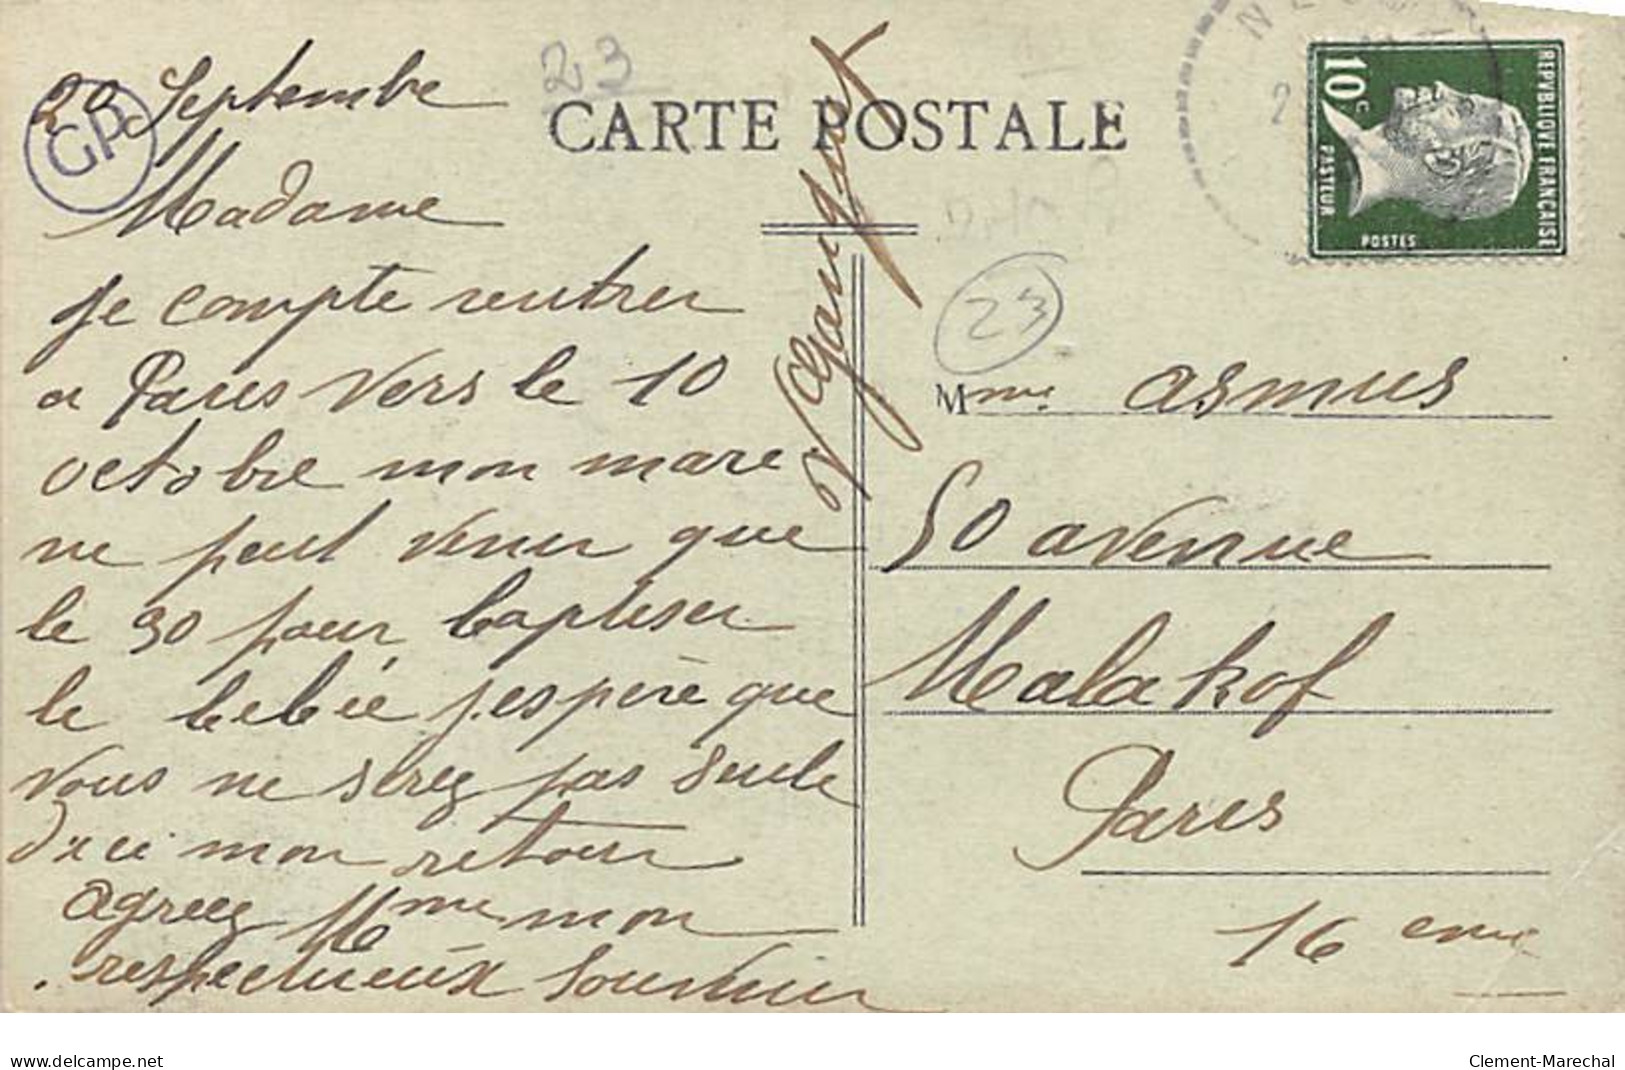 20 Septembre
GP
23
CARTE POSTALE
Madame
je compte rentrer
a Paris vers le 10
octobre mon mare
ne peut venir que
le 30 pour baptiser
le bebée j'espère que
vous ne serez pas seule
d'ici mon retour
agreez Mme mon
respectueux souvenir
10c
REPUBLIQUE FRANCAISE
PASTEUR
POSTES
23
Mme asmus
50 avenue
Malakof
Paris
16 eme
www.delcampe.net
Clement-Marechal